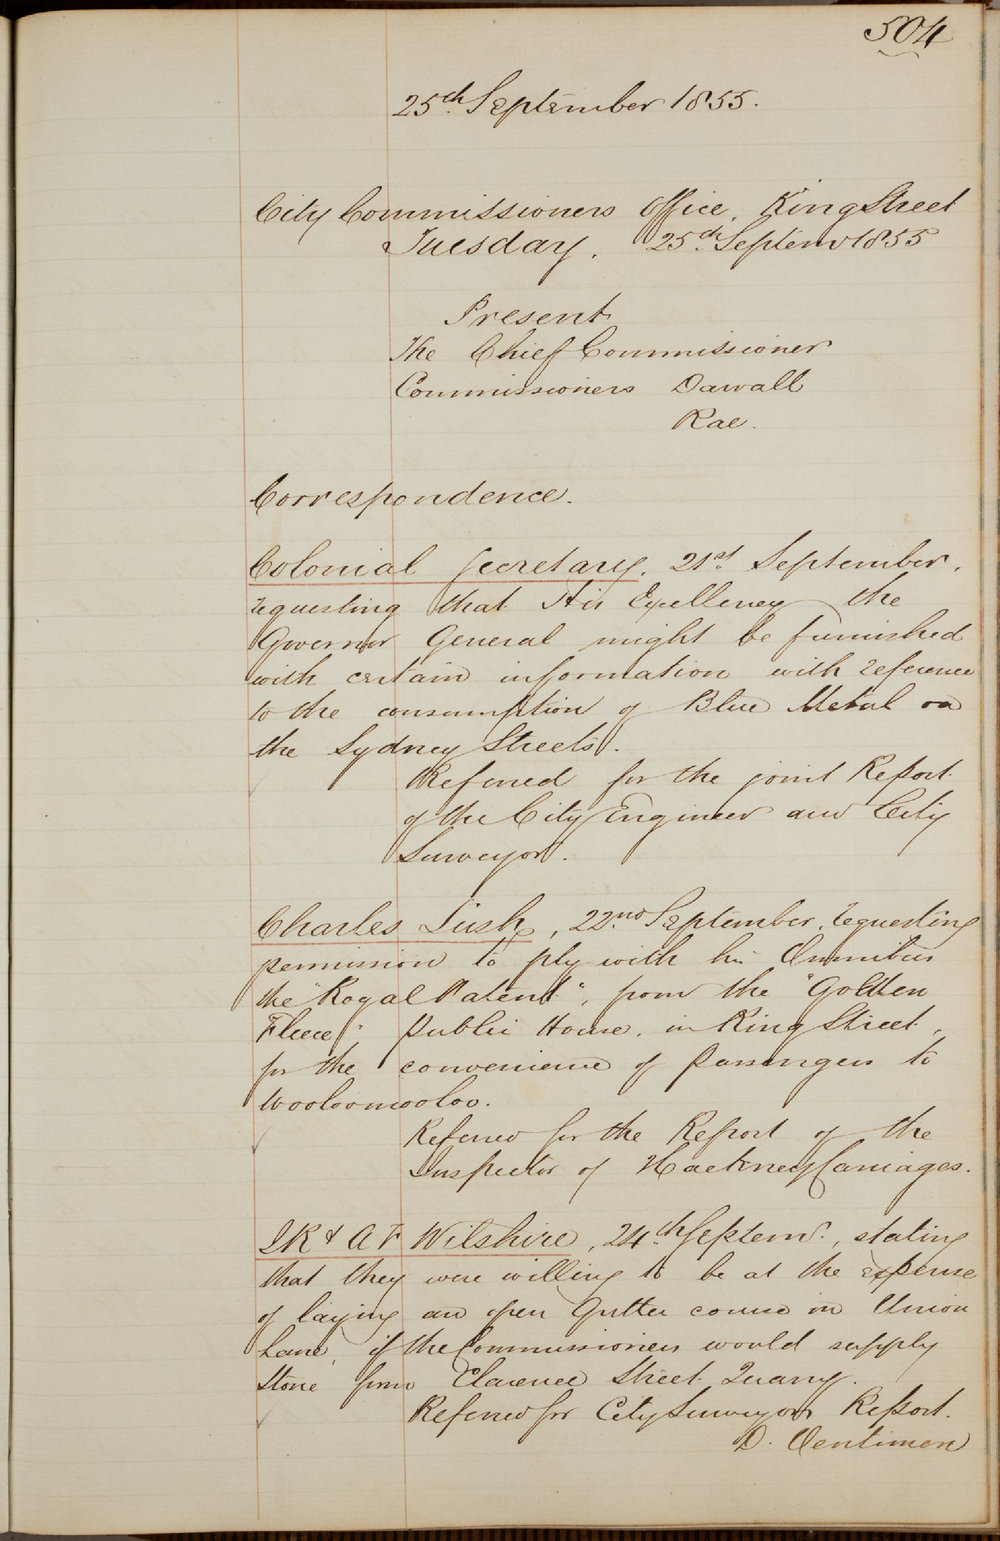 504
25th September 1855.
City Commissioners Office, King Street
Tuesday, 25th Septemr 1855
Present
The Chief Commissioner
Commissioners Darvall
Rae.
Correspondence.
Colonial Secretary, 21st September,
requesting that His Excellency the
Governor General might be furnished
with certain information with reference
to the consumption of Blue Metal on
the Sydney Streets.
Referred for the joint Report
of the City Engineer and City
Surveyor.
Charles Lush, 22nd September, requesting
permission to ply with his Omnibus
the "Royal Patent", from the "Golden
Fleece" Public House, in King Street,
for the convenience of Passengers to
Wooloomooloo.
Referred for the Report of the
Inspector of Hackney Carriages.
J R & A F Wilshire, 24th Septemr., stating
that they were willing to be at the expense
of laying an open Gutter course in Union
Lane, if the Commissioners would supply
Stone from Clarence Street Quarry.
Referred for City Surveyors Report.
D.